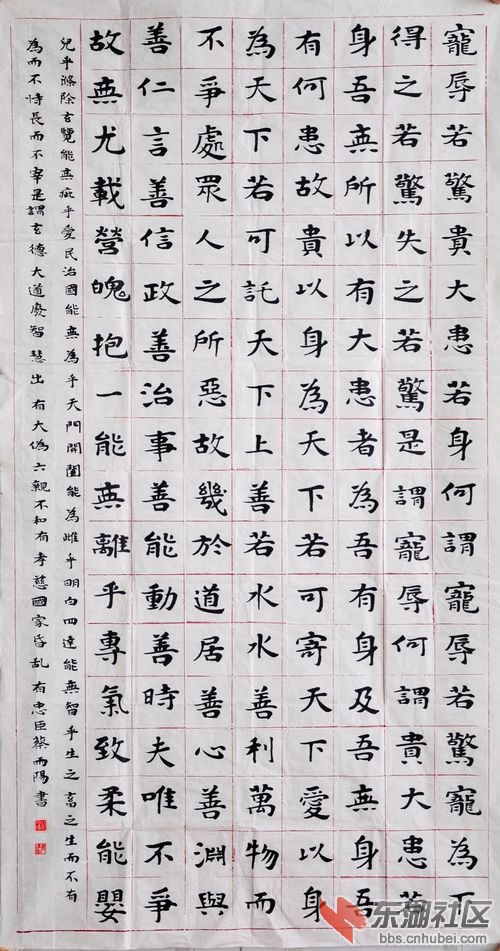 寵辱若驚貴大患若身何謂寵辱若驚寵為下
得之若驚失之若驚是謂寵辱何謂貴大患若
身吾無所以有大患者為吾有身及吾無身吾
有何患故貴以身為天下若可寄天下愛以身
為天下若可託天下上善若水水善利萬物而
不爭處眾人之所惡故幾於道居善心善淵與
善仁言善信政善治事善能動善時夫唯不爭
故無尤載營魄抱一能無離乎專氣致柔能嬰
兒乎滌除玄覽能無疵乎愛民治國能無為乎天門開闔能為雌乎明白四達能無智乎生之畜之生而不有
為而不恃長而不宰是謂玄德大道廢智慧出有大偽六親不和有孝慈國家昏乱有忠臣蔡雨陽書
东湖社区
bbs.cnhubei.com